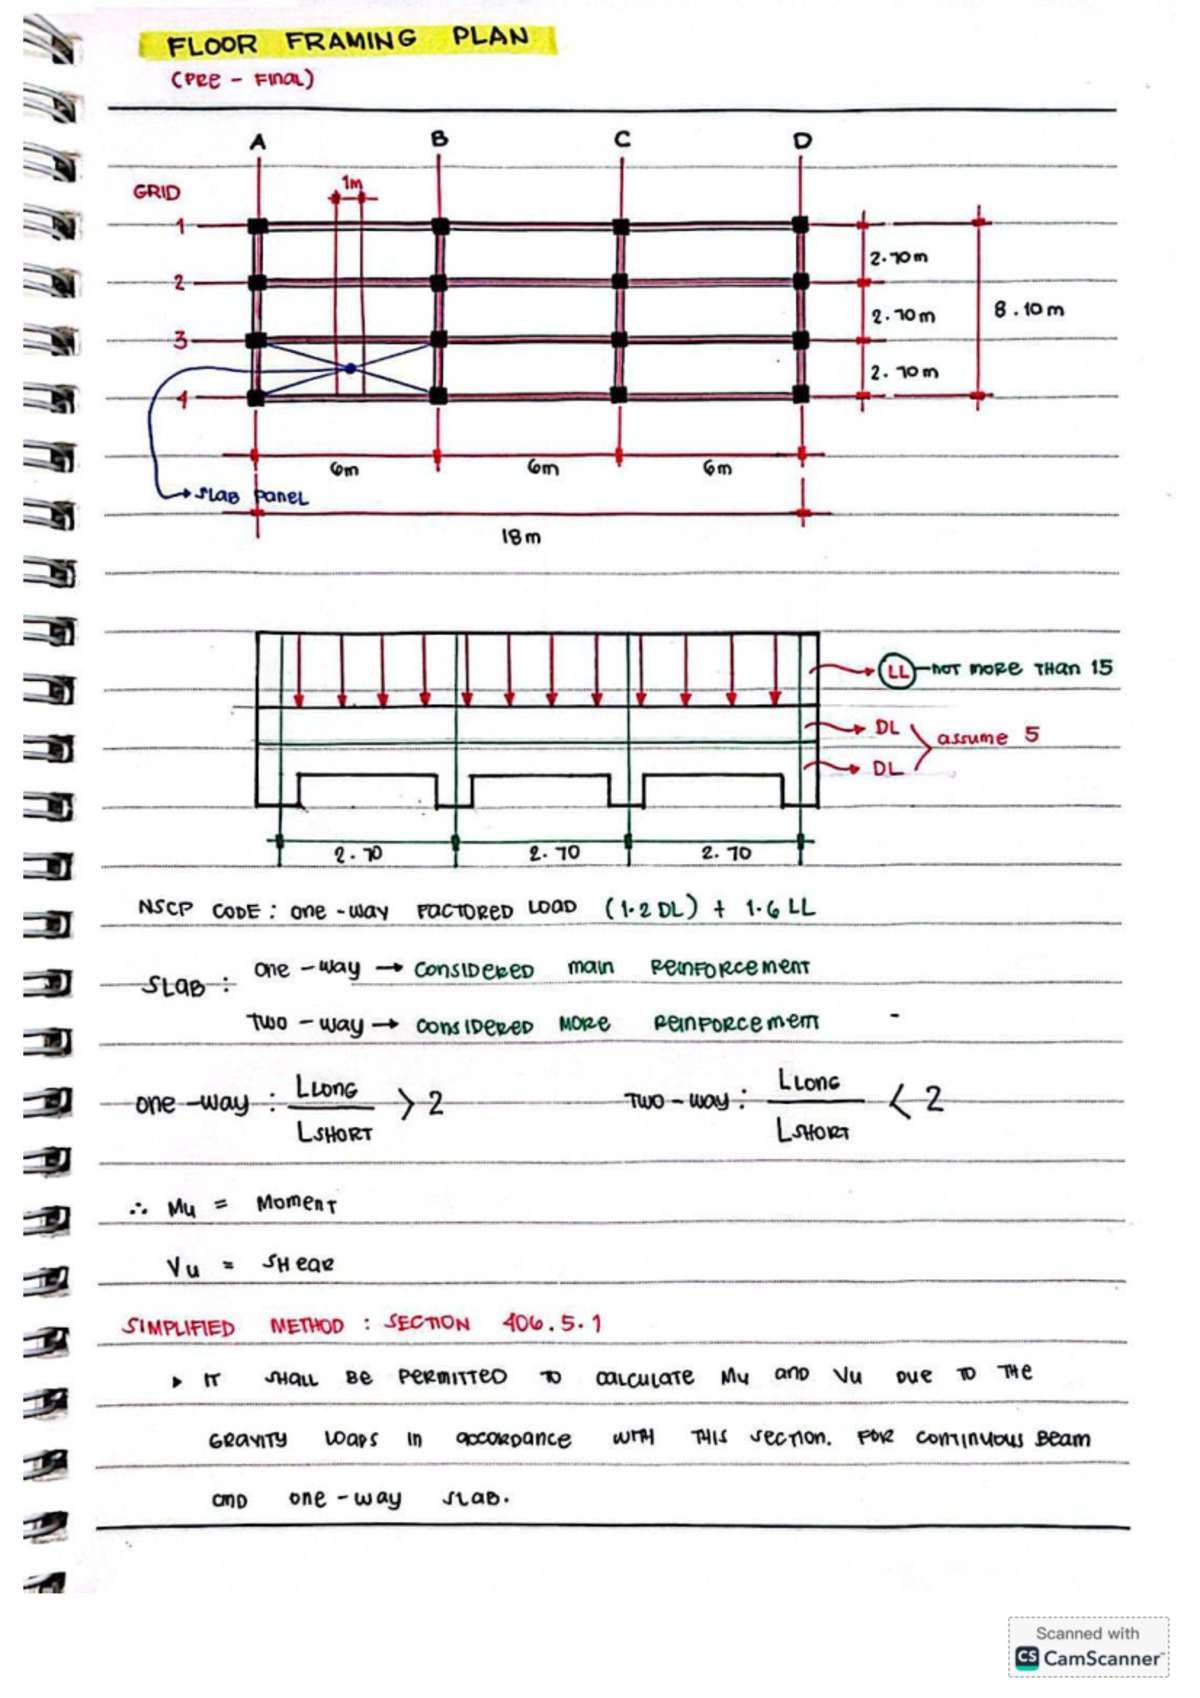 FLOOR FRAMING PLAN
(PRE - FINAL)
A B C D
GRID
1m
1
2
3
4
2.70m
2.70m
2.70m
8.10m
6m 6m 6m
SLAB PANEL
18m
LL - NOT MORE THAN 15
DL
DL
assume 5
2.70 2.70 2.70
NSCP CODE : ONE - WAY FACTORED LOAD (1.2 DL) + 1.6 LL
SLAB :
ONE - WAY → CONSIDERED MAIN REINFORCEMENT
TWO - WAY → CONSIDERED MORE REINFORCEMENT
ONE - WAY : LLONG / LSHORT > 2
TWO - WAY : LLONG / LSHORT < 2
∴ Mu = MOMENT
Vu = SHEAR
SIMPLIFIED METHOD : SECTION 406.5.1
▸ IT SHALL BE PERMITTED TO CALCULATE Mu AND Vu DUE TO THE
GRAVITY LOADS IN ACCORDANCE WITH THIS SECTION. FOR CONTINUOUS BEAM
AND ONE - WAY SLAB.
Scanned with
CS CamScanner